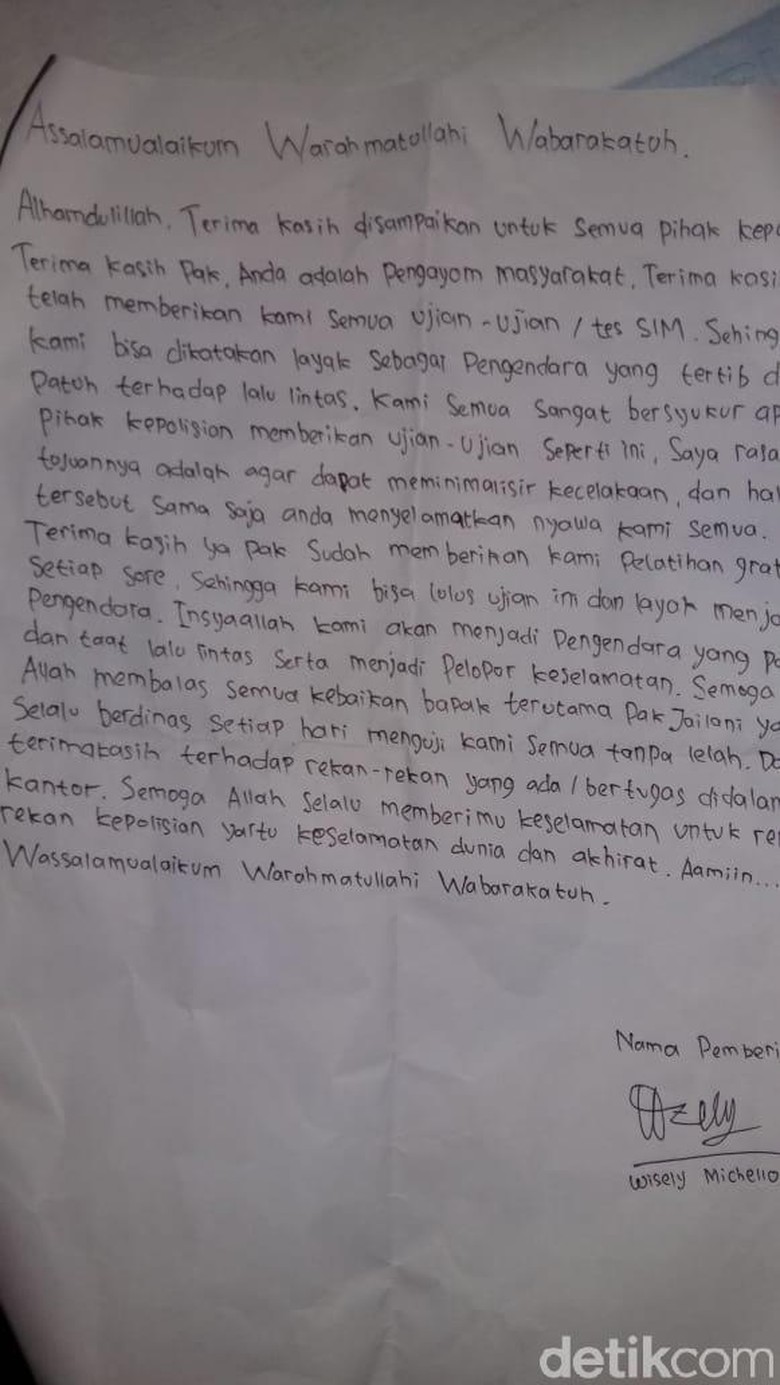 Assalamualaikum Warahmatullahi Wabarakatuh.
Alhamdulillah. Terima kasih disampaikan untuk semua pihak kepo
Terima kasih Pak, Anda adalah Pengayom masyarakat, Terima kasi
telah memberikan kami semua ujian-ujian / tes SIM. Sehing
kami bisa dikatakan layak sebagai Pengendara yang tertib d
Patuh terhadap lalu lintas. Kami semua sangat bersyukur ap
Pihak kepolisian memberikan ujian-ujian seperti ini, Saya rasa
tujuannya adalah agar dapat meminimalisir kecelakaan, dan ha
tersebut sama saja anda menyelamatkan nyawa kami semua.
Terima kasih ya pak sudah memberikan kami Pelatihan grat
setiap sore, sehingga kami bisa lulus ujian ini dan layak menja
Pengendara. Insyaallah kami akan menjadi Pengendara yang Pa
dan taat lalu lintas serta menjadi Pelopor keselamatan. Semoga
Allah membalas semua kebaikan bapak terutama Pak Jailani ya
selalu berdinas setiap hari menguji kami semua tanpa lelah. Da
terimakasih terhadap rekan-rekan yang ada / bertugas didalam
kantor. Semoga Allah selalu memberimu keselamatan untuk re
rekan kepolisian yaitu keselamatan dunia dan akhirat. Aamiin...
Wassalamualaikum Warahmatullahi Wabarakatuh.
Nama Pemberi
Wisely Michello
detikcom